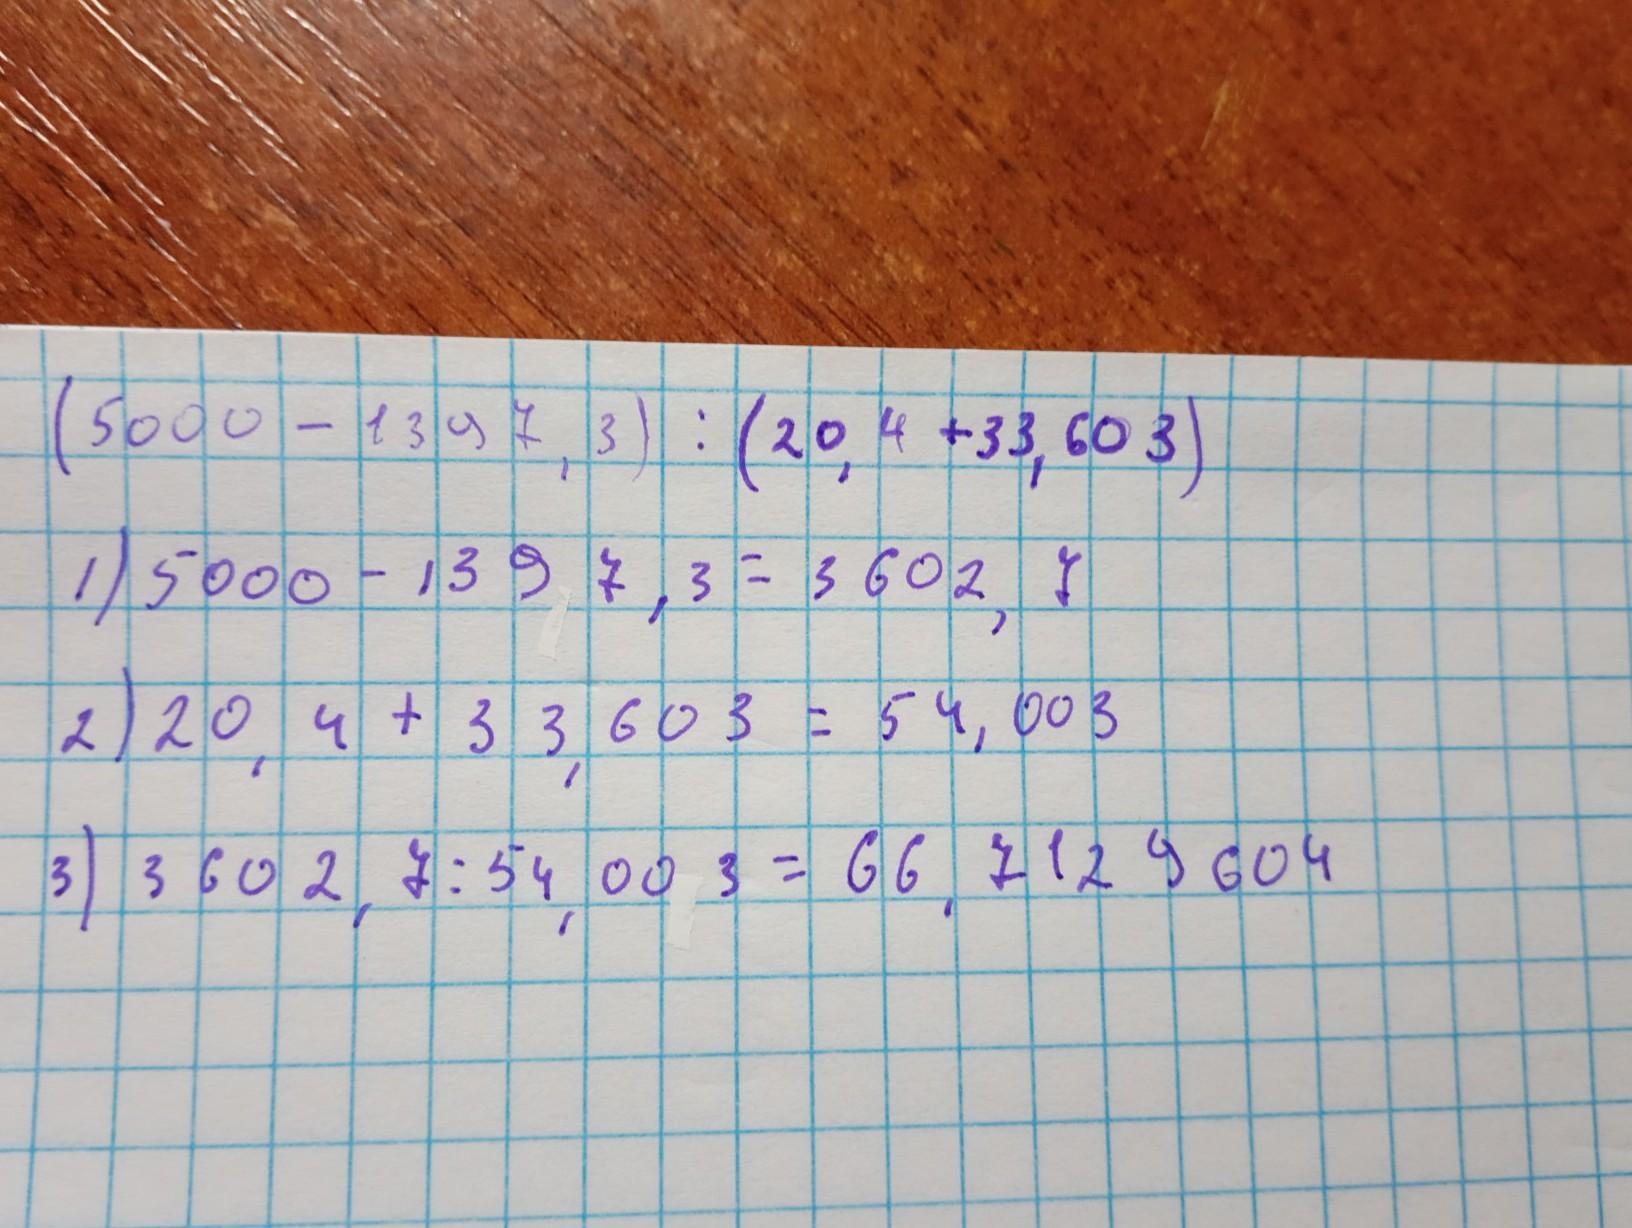 (5000 - 1397,3) : (20,4 + 33,603)
1) 5000 - 1397,3 = 3602,7
2) 20,4 + 33,603 = 54,003
3) 3602,7 : 54,003 = 66,7129604